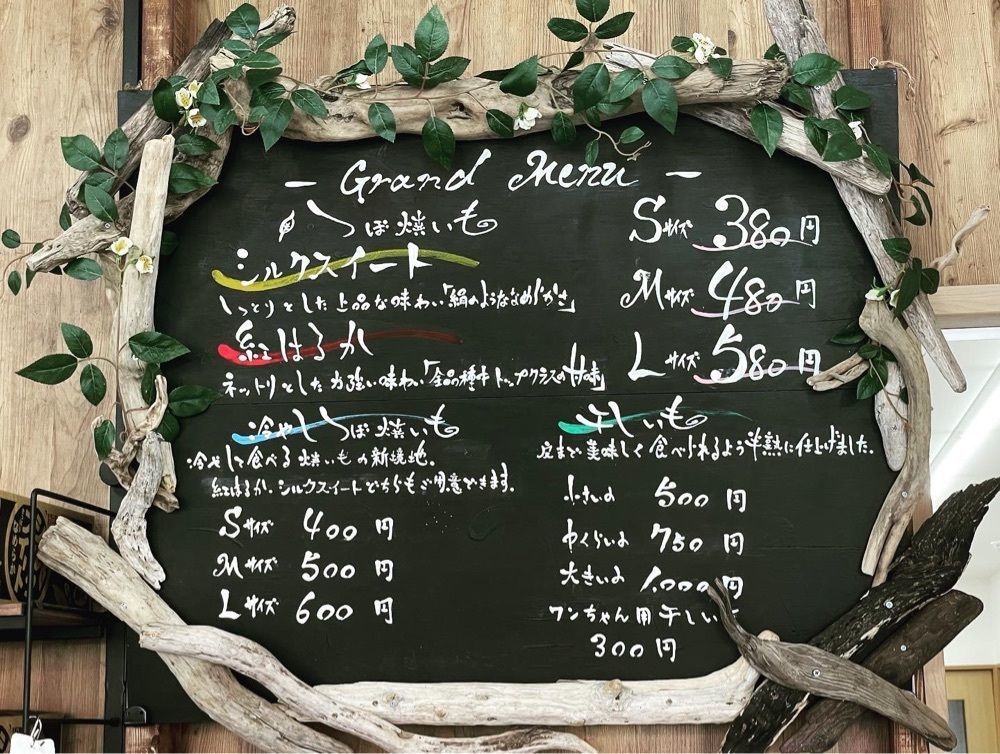 - Grand Menu -
つぼ焼いも
シルクスイート
しっとりとした上品な味わい「絹のようななめらかさ」
紅はるか
ネットリとした力強い味わい「全品種中トップクラスの甘味」
Sサイズ 380円
Mサイズ 480円
Lサイズ 580円
冷やしつぼ焼いも
冷やして食べる焼いもの新境地。
紅はるか、シルクスイートどちらもご用意できます。
Sサイズ 400円
Mサイズ 500円
Lサイズ 600円
干しいも
皮まで美味しく食べられるよう半熟に仕上げました。
小さいよ 500円
中くらいよ 750円
大きいよ 1,000円
ワンちゃん用干しい
300円